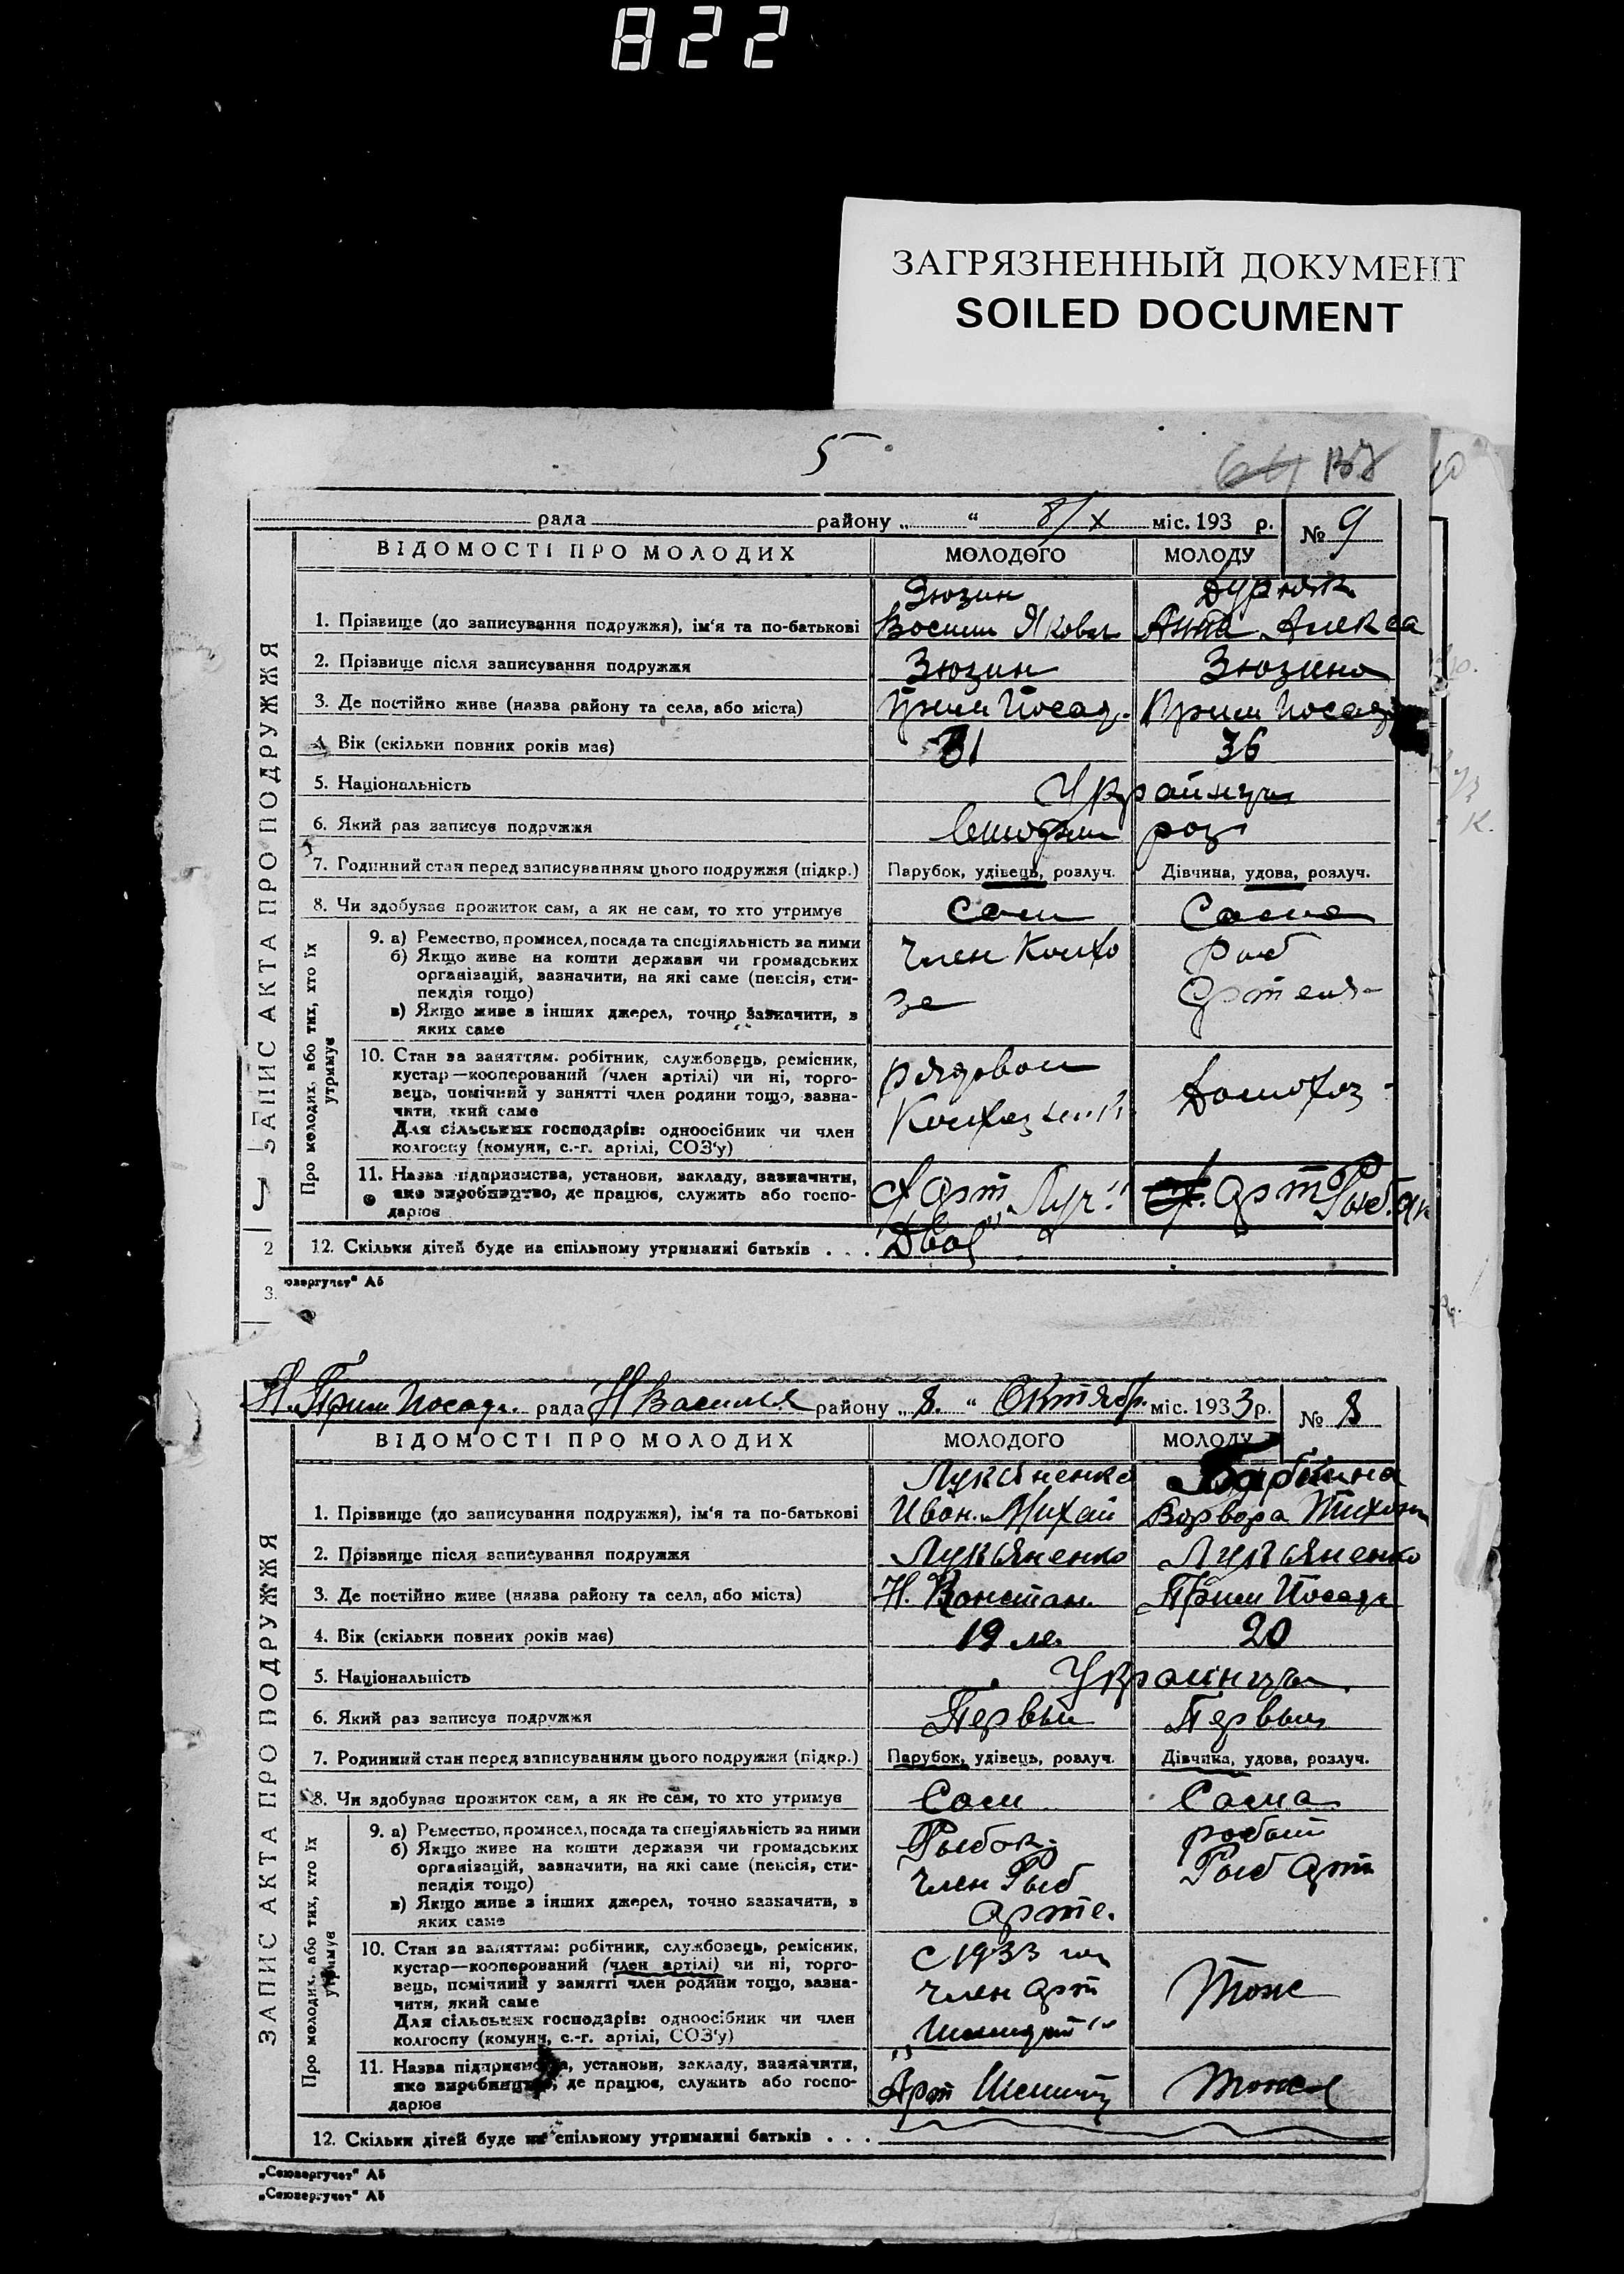 822
ЗАГРЯЗНЕННЫЙ ДОКУМЕНТ
SOILED DOCUMENT
5
64
рада району „ “ 8/X міс. 193 р. № 9
ВІДОМОСТІ ПРО МОЛОДИХ МОЛОДОГО МОЛОДУ
ЗАПИС АКТА ПРО ПОДРУЖЖЯ
Зюзин
1. Прізвище (до записування подружжя), ім'я та по-батькові Анна Алекса
2. Прізвище після записування подружжя Зюзин Зюзина
3. Де постійно живе (назва району та села, або міста) Прим Посад. Прим Посад
4. Вік (скільки повних років має) 31 36
5. Національність Украйнцы
6. Який раз записує подружжя раз
7. Родинний стан перед записуванням цього подружжя (підкр.) Парубок, удівець, розлуч. Дівчина, удова, розлуч.
8. Чи здобуває прожиток сам, а як не сам, то хто утримує Сам Сама
Про молодих, або тих, хто їх утримує
9. а) Ремество, промисел, посада та спеціяльність за ними
б) Якщо живе на кошти держави чи громадських
організацій, зазначити, на які саме (пенсія, сти-
пендія тощо)
в) Якщо живе з інших джерел, точно зазначити, з
яких саме
Член Колхо
за
Рыб
Артели
10. Стан за заняттям: робітник, службовець, ремісник,
кустар—кооперований (член артілі) чи ні, торго-
вець, помічний у занятті член родини тощо, зазна-
чити, який саме
Для сільських господарів: одноосібник чи член
колгоспу (комуни, с.-г. артілі, СОЗ'у)
рядовой
Колхозник
Домохоз
11. Назва підприємства, установи, закладу, зазначити,
яке виробництво, де працює, служить або госпо-
дарює
Арт „Луч" Арт
12. Скільки дітей буде на спільному утриманні батьків . . . Двое
2
3.
юзоргучет" А5
Н. Прим Посад. рада Н Василья району „ 8. “ Октябр. міс. 1933 р. № 8
ВІДОМОСТІ ПРО МОЛОДИХ МОЛОДОГО МОЛОДУ
ЗАПИС АКТА ПРО ПОДРУЖЖЯ
Лукяненко
1. Прізвище (до записування подружжя), ім'я та по-батькові Иван. Михай Варвара Тихон
2. Прізвище після записування подружжя Лукьяненко Лукьяненко
3. Де постійно живе (назва району та села, або міста) Н. Констан. Прим Посад
4. Вік (скільки повних років має) 19 ле. 20
5. Національність Украинцы
6. Який раз записує подружжя Первый Первый
7. Родинний стан перед записуванням цього подружжя (підкр.) Парубок, удівець, розлуч. Дівчина, удова, розлуч.
8. Чи здобуває прожиток сам, а як не сам, то хто утримує Сам Сама
Про молодих, або тих, хто їх утримує
9. а) Ремество, промисел, посада та спеціяльність за ними
б) Якщо живе на кошти держави чи громадських
організацій, зазначити, на які саме (пенсія, сти-
пендія тощо)
в) Якщо живе з інших джерел, точно зазначити, з
яких саме
Рыбак.
Член Рыб
Арте.
Рыб Арт
10. Стан за заняттям: робітник, службовець, ремісник,
кустар—кооперований (член артілі) чи ні, торго-
вець, помічний у занятті член родини тощо, зазна-
чити, який саме
Для сільських господарів: одноосібник чи член
колгоспу (комуни, с.-г. артілі, СОЗ'у)
С 1933 год
Член Арт
Тоже
11. Назва підприємства, установи, закладу, зазначити,
яке виробництво, де працює, служить або госпо-
дарює
Арт Тоже
12. Скільки дітей буде на спільному утриманні батьків . . .
„Союзоргучет" А5
„Союзоргучет" А5